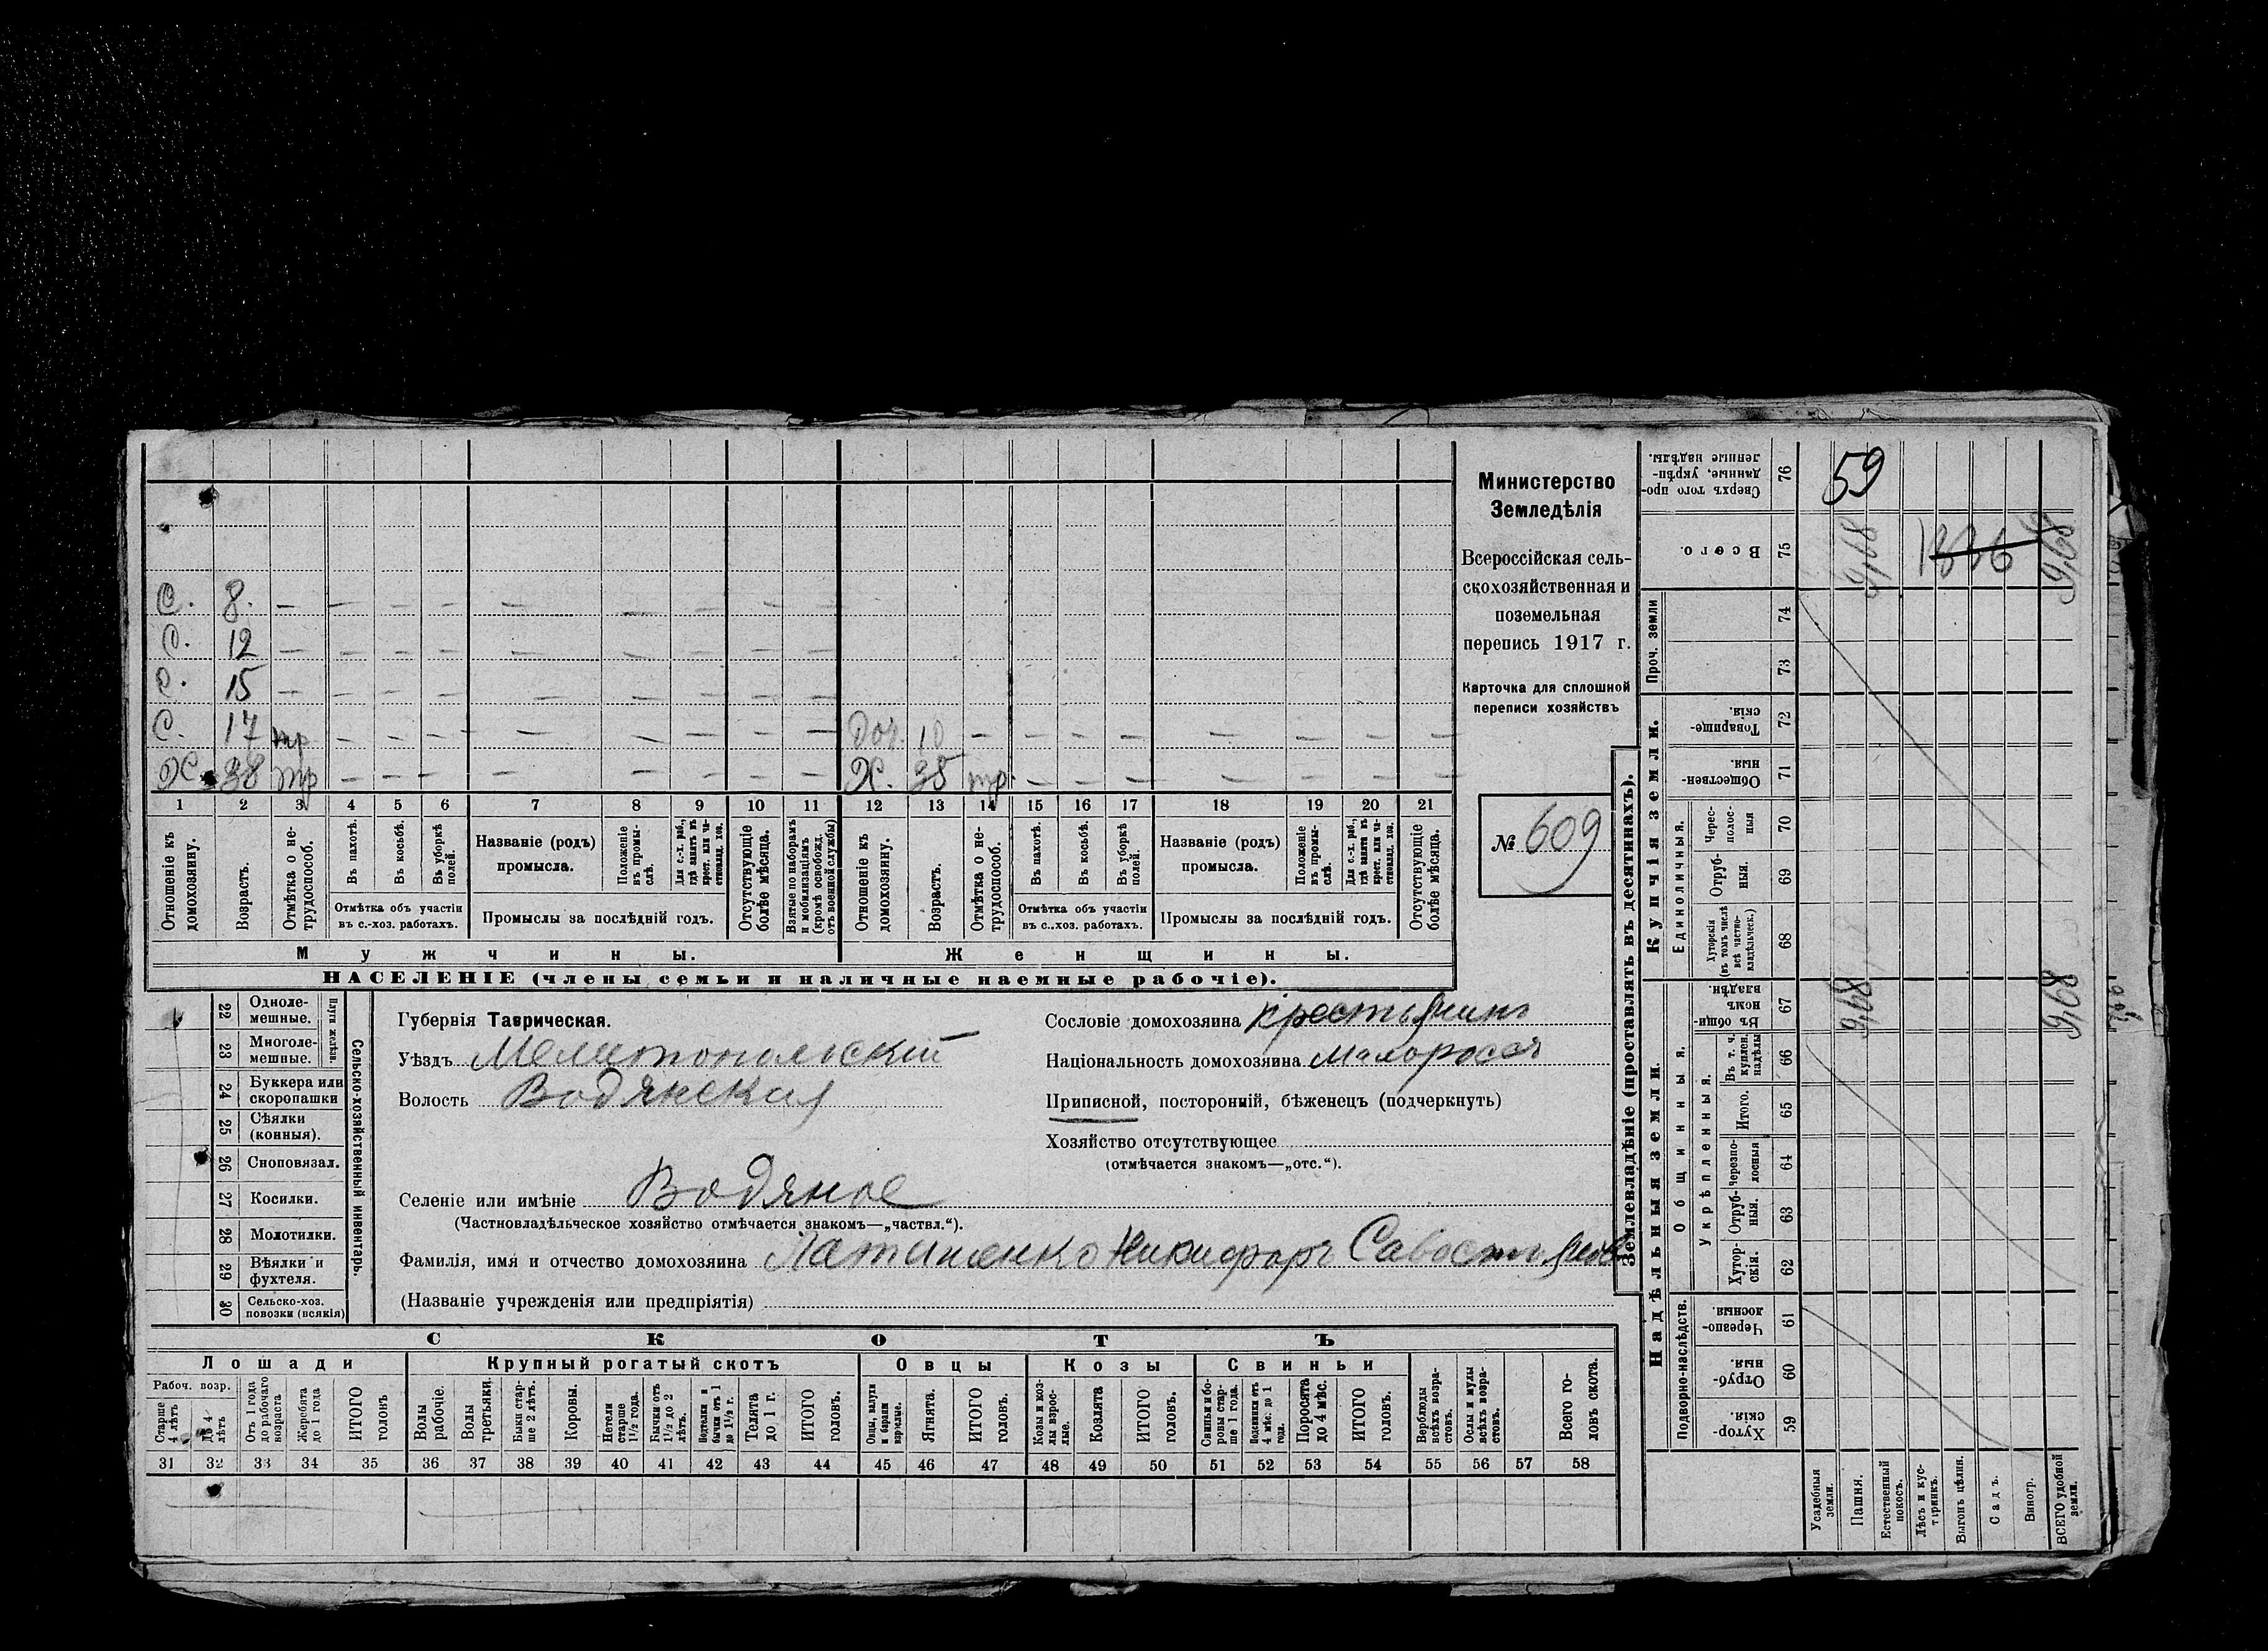 С. 8. — — — — — — — — —
С. 12 — — — — — — — — —
С. 15 — — — — — — — — —
С. 17 тр — — — — — — — — Доч. 10 — — — — — — — —
Х. 38 тр — — — — — — — — Х. 35 тр. — — — — — — —
1 2 3 4 5 6 7 8 9 10 11 12 13 14 15 16 17 18 19 20 21
Отношеніе къ домохозяину.
Возрастъ.
Отмѣтка о не-
трудоспособ.
Въ пахотѣ.
Въ косьбѣ.
Въ уборкѣ
полей.
Отмѣтка объ участіи
въ с.-хоз. работахъ.
Названіе (родъ)
промысла.
Положеніе
въ промы-
слѣ.
Для с.-х. раб.,
гдѣ занятъ въ
крест. или ча-
стновлад. хоз.
Промыслы за послѣдній годъ.
Отсутствующіе
болѣе мѣсяца.
Взятые по наборамъ
и мобилизаціямъ
(кромѣ освобожд.
отъ военной службы)
Отношеніе къ
домохозяину.
Возрастъ.
Отмѣтка о не-
трудоспособ.
Въ пахотѣ.
Въ косьбѣ.
Въ уборкѣ
полей.
Отмѣтка объ участіи
въ с..хоз. работахъ.
Названіе (родъ)
промысла.
Положеніе
въ промы-
слѣ.
Для с.-х. раб.,
гдѣ занятъ въ
крест. или ча-
стновлад. хоз.
Промыслы за послѣдній годъ.
Отсутствующіе
болѣе мѣсяца.
Мужчины. Женщины.
НАСЕЛЕНІЕ (члены семьи и наличные наемные рабочіе).
Министерство
Земледѣлія
Всероссійская сель-
скохозяйственная и
поземельная
перепись 1917 г.
Карточка для сплошной
переписи хозяйствъ
№ 609
22 Одноле-
мешные.
23 Многоле-
мешные.
Плуги желѣзн.
24 Буккера или
скоропашки
25 Сѣялки
(конныя).
26 Сноповязал.
27 Косилки.
28 Молотилки.
29 Вѣялки и
фухтеля.
30 Сельско-хоз.
повозки (всякія)
Сельско-хозяйственный инвентарь.
Губернія Таврическая.
Уѣздъ Мелитопольскій
Волость Водянская
Селеніе или имѣніе Водяное
(Частновладѣльческое хозяйство отмѣчается знакомъ—„частвл.“).
Фамилія, имя и отчество домохозяина Никифоръ
(Названіе учрежденія или предпріятія)
Сословіе домохозяина крестьянинъ
Національность домохозяина малороссъ
Приписной, посторонній, бѣженецъ (подчеркнуть)
Хозяйство отсутствующее
(отмѣчается знакомъ—„отс.“).
СКОТЪ
Лошади Крупный рогатый скотъ Овцы Козы Свиньи
Рабоч. возр.
Старше
4 лѣтъ
До 4
лѣтъ
Отъ 1 года
до рабочаго
возраста
Жеребята
до 1 года
ИТОГО
головъ
Волы
рабочіе.
Волы
третьяки.
Быки стар-
ше 2 лѣтъ.
Коровы.
Нетели
старше
1½ года.
Бычки отъ
1½ до 2
лѣтъ.
Подтелки и
бычки отъ 1
до 1½ г.
Телята
до 1 г.
ИТОГО
головъ.
Овцы, валухи
и бараны
взрослые.
Ягнята.
ИТОГО
головъ.
Козы и коз-
лы взрос-
лые.
Козлята
ИТОГО
головъ.
Свиньи и бо-
ровы стар-
ше 1 года.
Подсвинки отъ
4 мѣс. до 1
года.
Поросята
до 4 мѣс.
ИТОГО
головъ.
Верблюды
всѣхъ возра-
стовъ.
Ослы и мулы
всѣхъ возра-
стовъ.
Всего го-
ловъ скота.
31 32 33 34 35 36 37 38 39 40 41 42 43 44 45 46 47 48 49 50 51 52 53 54 55 56 57 58
Землевладѣніе (проставлять въ десятинахъ).
Надѣльныя земли. Купчія земли. Проч. земли
Подворно-наслѣдств.
Общинныя.
Укрѣпленныя.
Единоличныя.
Сверхъ того про-
данные, укрѣп-
ленные надѣлы.
76
59
Всего.
75
9,68 1336 9,68
74
73
Товарище-
скія.
72
Обществен-
ныя.
71
Черес-
полос-
ныя
70
Отруб-
ныя.
69
Хуторскія
(въ томъ числѣ
всѣ частно-
владѣльческ.)
68
Въ общи-
номъ
владѣн.
67
9,68 9,68
Въ т. ч.
куплен.
надѣлы
66
Итого.
65
Черезпо-
лосныя
64
Отруб-
ныя.
63
Хутор-
скія.
62
Черезпо-
лосныя.
61
Отруб-
ныя.
60
Хутор-
скія.
59
Усадебныя
земли.
Пашня.
Естественный
покосъ.
Лѣсъ и кус-
тарникъ.
Выгонъ цѣлин.
Садъ.
Виногр.
ВСЕГО удобной
земли.